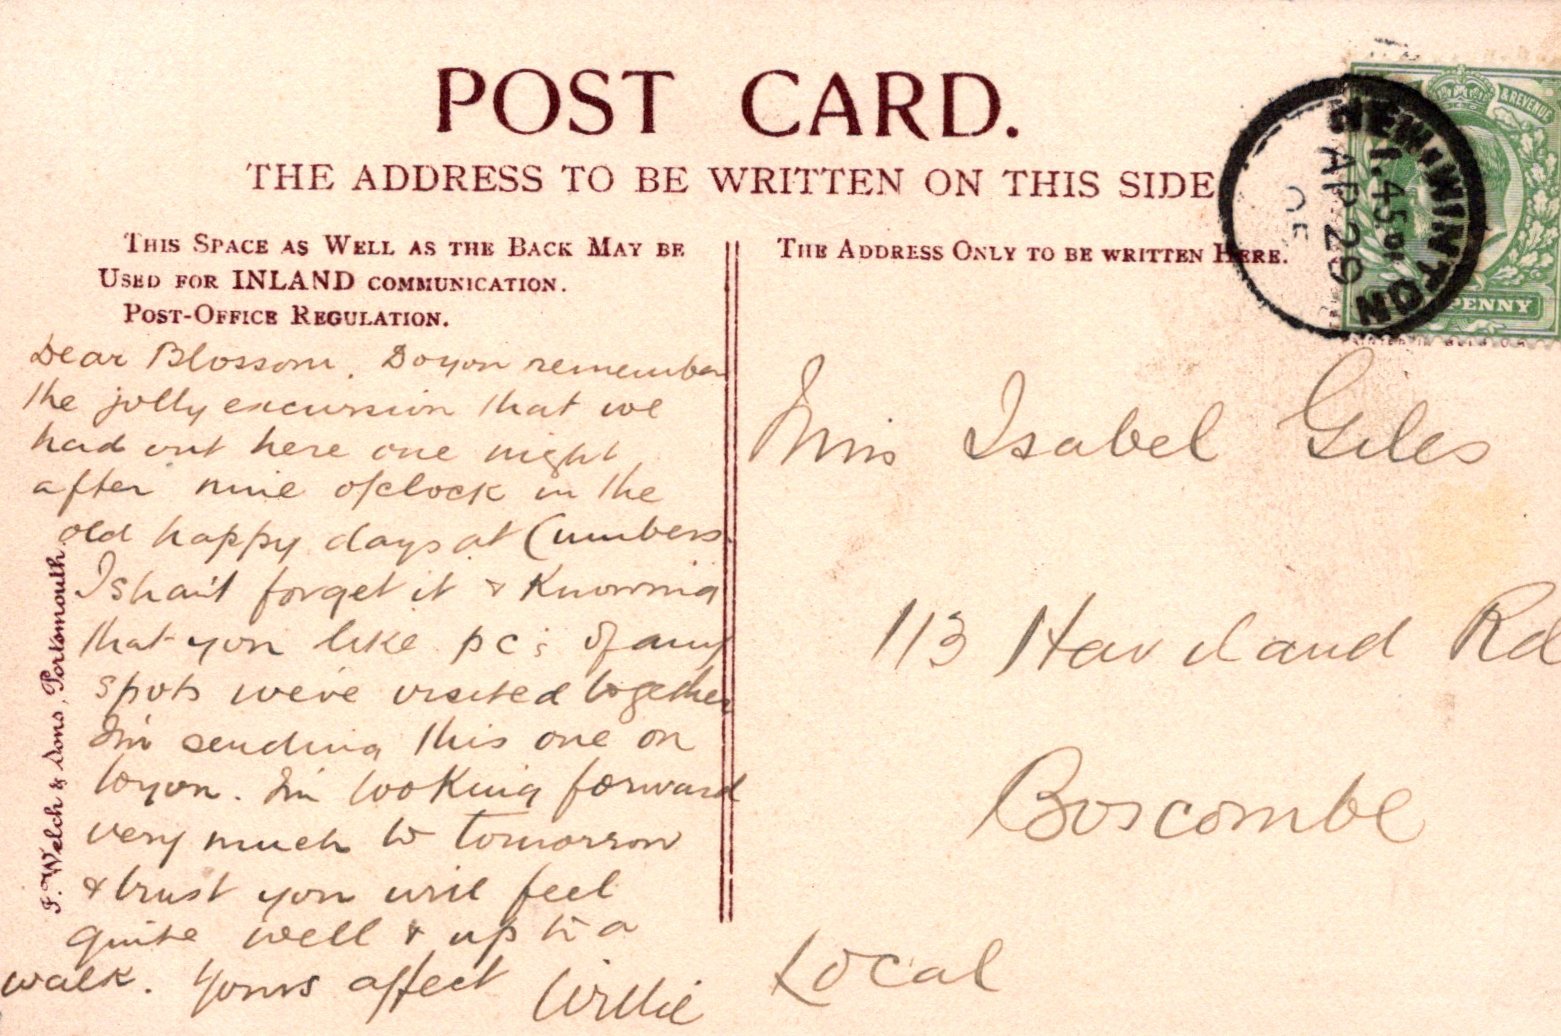 POST CARD.
THE ADDRESS TO BE WRITTEN ON THIS SIDE
THIS SPACE AS WELL AS THE BACK MAY BE
USED FOR INLAND COMMUNICATION.
POST-OFFICE REGULATION.
Dear Blossom. Do you remember
the jolly excursion that we
had out here one night
after nine o'clock in the
old happy days at Cumbers.
I shan't forget it & knowing
that you like pc's of any
spots we've visited together
I'm sending this one on
to you. I'm looking forward
very much to tomorrow
& trust you will feel
quite well & up to a
walk. Yours affect Willie
F. Welch & Sons, Portsmouth.
THE ADDRESS ONLY TO BE WRITTEN HERE.
Miss Isabel Giles
113 Haviland Rd
Boscombe
Local
& REVENUE
PENNY
WINTON
1.45 PM
AP 29
05